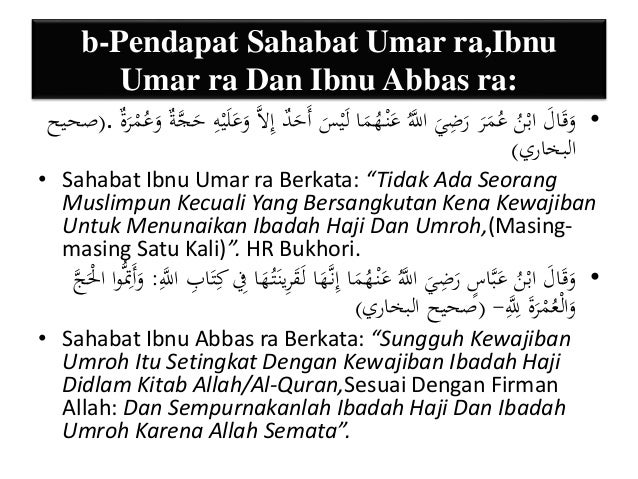 b-Pendapat Sahabat Umar ra,Ibnu
Umar ra Dan Ibnu Abbas ra:
• وَقَالَ ابْنُ عُمَرَ رَضِيَ اللَّهُ عَنْهُمَا لَيْسَ أَحَدٌ إِلاَّ وَعَلَيْهِ حَجَّةٌ وَعُمْرَةٌ . (صحيح
البخاري)
• Sahabat Ibnu Umar ra Berkata: “Tidak Ada Seorang
Muslimpun Kecuali Yang Bersangkutan Kena Kewajiban
Untuk Menunaikan Ibadah Haji Dan Umroh,(Masing-
masing Satu Kali)”. HR Bukhori.
• وَقَالَ ابْنُ عَبَّاسٍ رَضِيَ اللَّهُ عَنْهُمَا إِنَّهَا لَقَرِينَتُهَا فِي كِتَابِ اللَّهِ: وَأَتِمُّوا الْحَجَّ
وَالْعُمْرَةَ لِلَّهِ – (صحيح البخاري)
• Sahabat Ibnu Abbas ra Berkata: “Sungguh Kewajiban
Umroh Itu Setingkat Dengan Kewajiban Ibadah Haji
Didlam Kitab Allah/Al-Quran,Sesuai Dengan Firman
Allah: Dan Sempurnakanlah Ibadah Haji Dan Ibadah
Umroh Karena Allah Semata”.